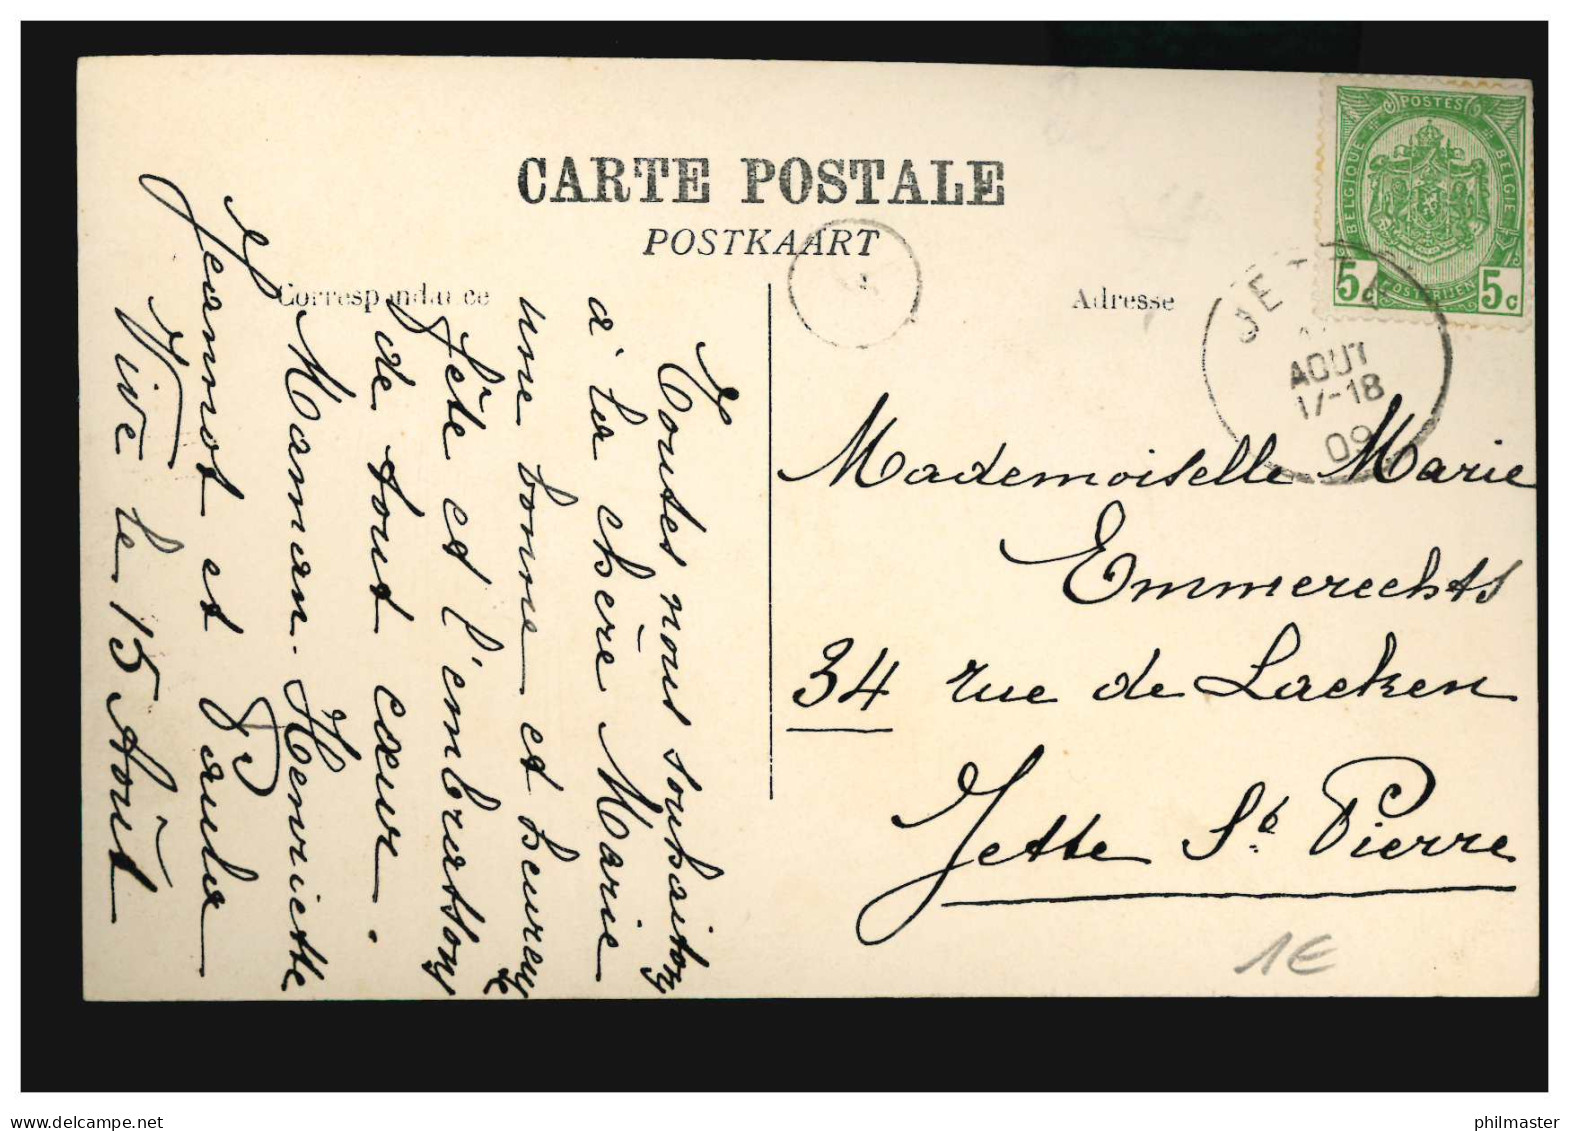 CARTE POSTALE
POSTKAART
Correspondance
Adresse
POSTES
BELGIQUE
BELGIE
POSTERIJEN
5c
5c
JETTE
AOUT
17-18
09
Toutes nous souhaitons
à la chère Marie
une bonne et heureuse
fête et l'embrassons
de tout cœur.
Maman. Henriette
Jeannot et Paula
Vive le 15 Août
Mademoiselle Marie
Emmerechts
34 rue de Laeken
Jette St. Pierre
1E
philmaster